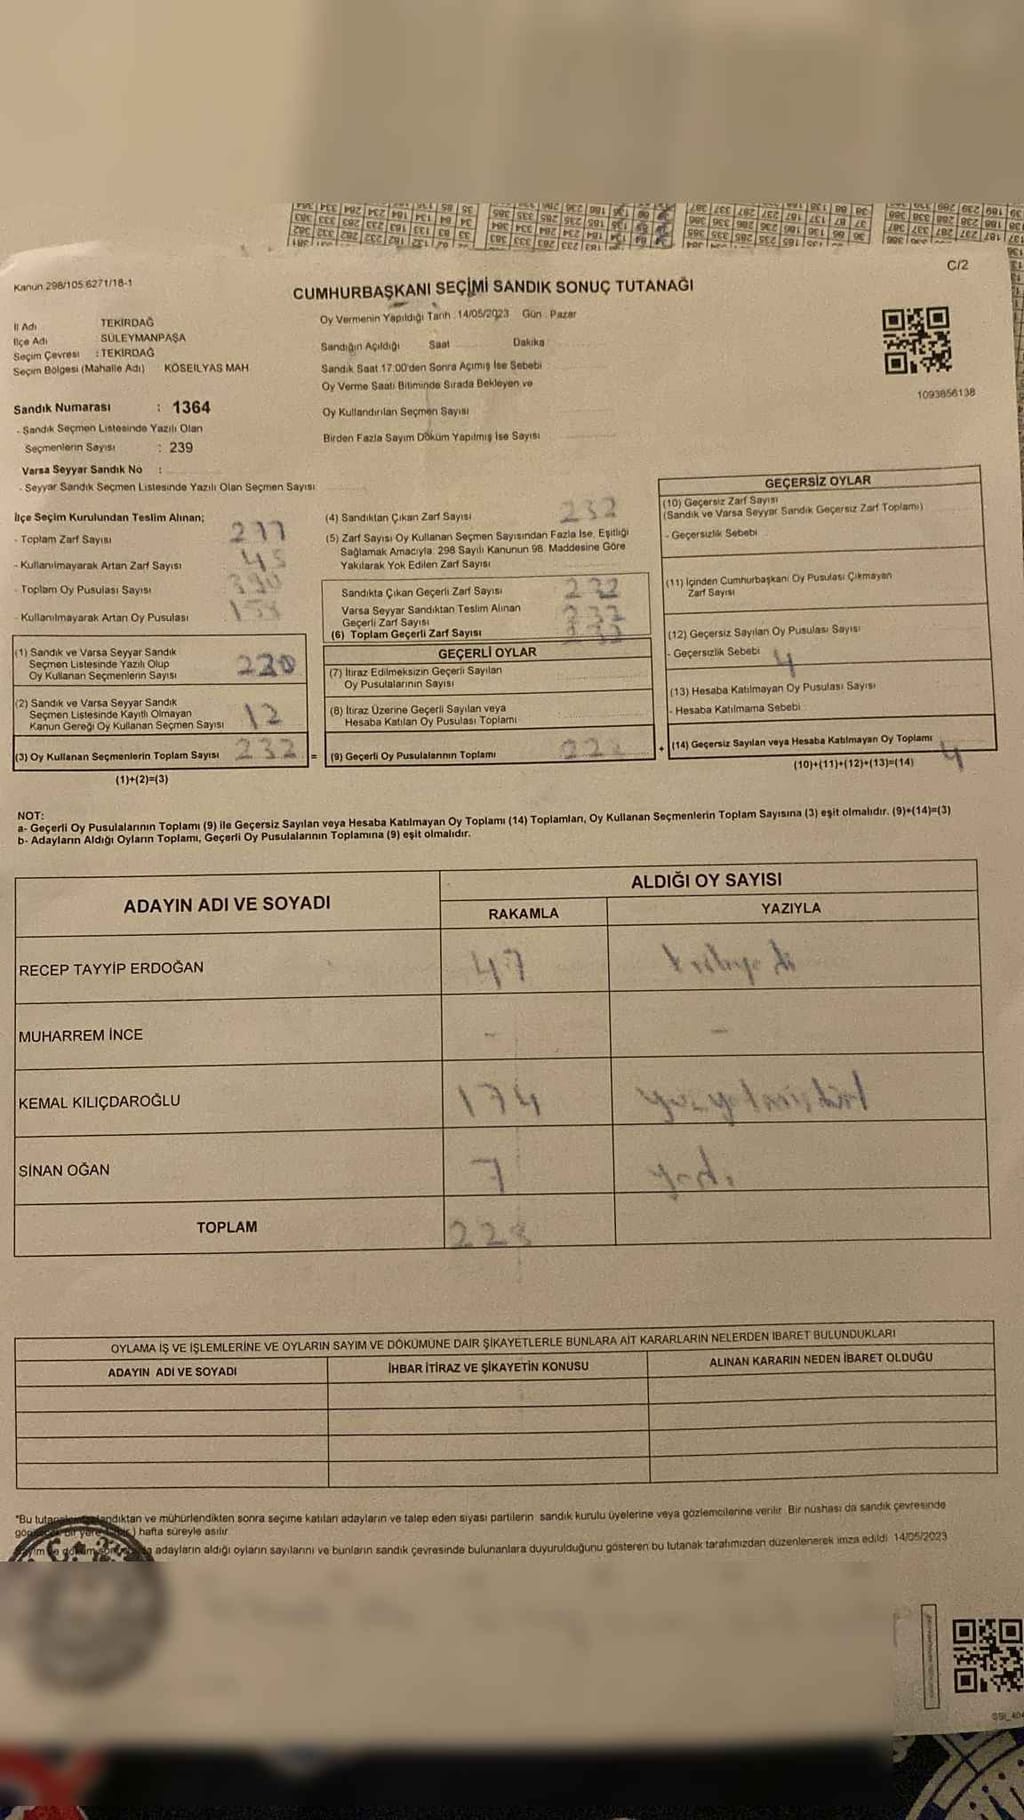 C/2
Kanun 298/105 6271/18-1
CUMHURBAŞKANI SEÇİMİ SANDIK SONUÇ TUTANAĞI
İl Adı TEKİRDAĞ
İlçe Adı SÜLEYMANPAŞA
Seçim Çevresi : TEKİRDAĞ
Seçim Bölgesi (Mahalle Adı) KÖSEILYAS MAH
Oy Vermenin Yapıldığı Tarih 14/05/2023 Gün Pazar
Sandığın Açıldığı Saat Dakika
Sandık Saat 17.00'den Sonra Açımış İse Sebebi
Oy Verme Saati Bitiminde Sırada Bekleyen ve
Oy Kullandırılan Seçmen Sayısı
Birden Fazla Sayım Döküm Yapılmış İse Sayısı
1093856138
Sandık Numarası : 1364
- Sandık Seçmen Listesinde Yazılı Olan
Seçmenlerin Sayısı : 239
Varsa Seyyar Sandık No :
- Seyyar Sandık Seçmen Listesinde Yazılı Olan Seçmen Sayısı
İlçe Seçim Kurulundan Teslim Alınan;
- Toplam Zarf Sayısı
- Kullanılmayarak Artan Zarf Sayısı 45
- Toplam Oy Pusulası Sayısı
- Kullanılmayarak Artan Oy Pusulası
(1) Sandık ve Varsa Seyyar Sandık
Seçmen Listesinde Yazılı Olup
Oy Kullanan Seçmenlerin Sayısı 220
(2) Sandık ve Varsa Seyyar Sandık
Seçmen Listesinde Kayıtlı Olmayan
Kanun Gereği Oy Kullanan Seçmen Sayısı 12
(3) Oy Kullanan Seçmenlerin Toplam Sayısı 232 =
(1)+(2)=(3)
(4) Sandıktan Çıkan Zarf Sayısı 232
(5) Zarf Sayısı Oy Kullanan Seçmen Sayısından Fazla İse, Eşitliği
Sağlamak Amacıyla 298 Sayılı Kanunun 98. Maddesine Göre
Yakılarak Yok Edilen Zarf Sayısı
Sandıkta Çıkan Geçerli Zarf Sayısı 232
Varsa Seyyar Sandıktan Teslim Alınan
Geçerli Zarf Sayısı
(6) Toplam Geçerli Zarf Sayısı
GEÇERLİ OYLAR
(7) İtiraz Edilmeksizin Geçerli Sayılan
Oy Pusulalarının Sayısı
(8) İtiraz Üzerine Geçerli Sayılan veya
Hesaba Katılan Oy Pusulası Toplamı
(9) Geçerli Oy Pusulalarının Toplamı 228 +
GEÇERSİZ OYLAR
(10) Geçersiz Zarf Sayısı
(Sandık ve Varsa Seyyar Sandık Geçersiz Zarf Toplamı)
- Geçersizlik Sebebi
(11) İçinden Cumhurbaşkanı Oy Pusulası Çıkmayan
Zarf Sayısı
(12) Geçersiz Sayılan Oy Pusulası Sayısı
- Geçersizlik Sebebi 4
(13) Hesaba Katılmayan Oy Pusulası Sayısı
- Hesaba Katılmama Sebebi
(14) Geçersiz Sayılan veya Hesaba Katılmayan Oy Toplamı 4
(10)+(11)+(12)+(13)=(14)
NOT:
a- Geçerli Oy Pusulalarının Toplamı (9) ile Geçersiz Sayılan veya Hesaba Katılmayan Oy Toplamı (14) Toplamları, Oy Kullanan Seçmenlerin Toplam Sayısına (3) eşit olmalıdır. (9)+(14)=(3)
b- Adayların Aldığı Oyların Toplamı, Geçerli Oy Pusulalarının Toplamına (9) eşit olmalıdır.
ADAYIN ADI VE SOYADI
ALDIĞI OY SAYISI
RAKAMLA YAZIYLA
RECEP TAYYİP ERDOĞAN 47 kırkyedi
MUHARREM İNCE - -
KEMAL KILIÇDAROĞLU 174 yüzyetmişdört
SİNAN OĞAN 7 yedi
TOPLAM 228
OYLAMA İŞ VE İŞLEMLERİNE VE OYLARIN SAYIM VE DÖKÜMÜNE DAİR ŞİKAYETLERLE BUNLARA AİT KARARLARIN NELERDEN İBARET BULUNDUKLARI
ADAYIN ADI VE SOYADI İHBAR İTİRAZ VE ŞİKAYETİN KONUSU ALINAN KARARIN NEDEN İBARET OLDUĞU
"Bu landıktan ve mühürlendikten sonra seçime katılan adayların ve talep eden siyasi partilerin sandık kurulu üyelerine veya gözlemcilerine verilir Bir nüshası da sandık çevresinde
hafta süreyle asılır
adayların aldığı oyların sayılarını ve bunların sandık çevresinde bulunanlara duyurulduğunu gösteren bu tutanak tarafımızdan düzenlenerek imza edildi 14/05/2023